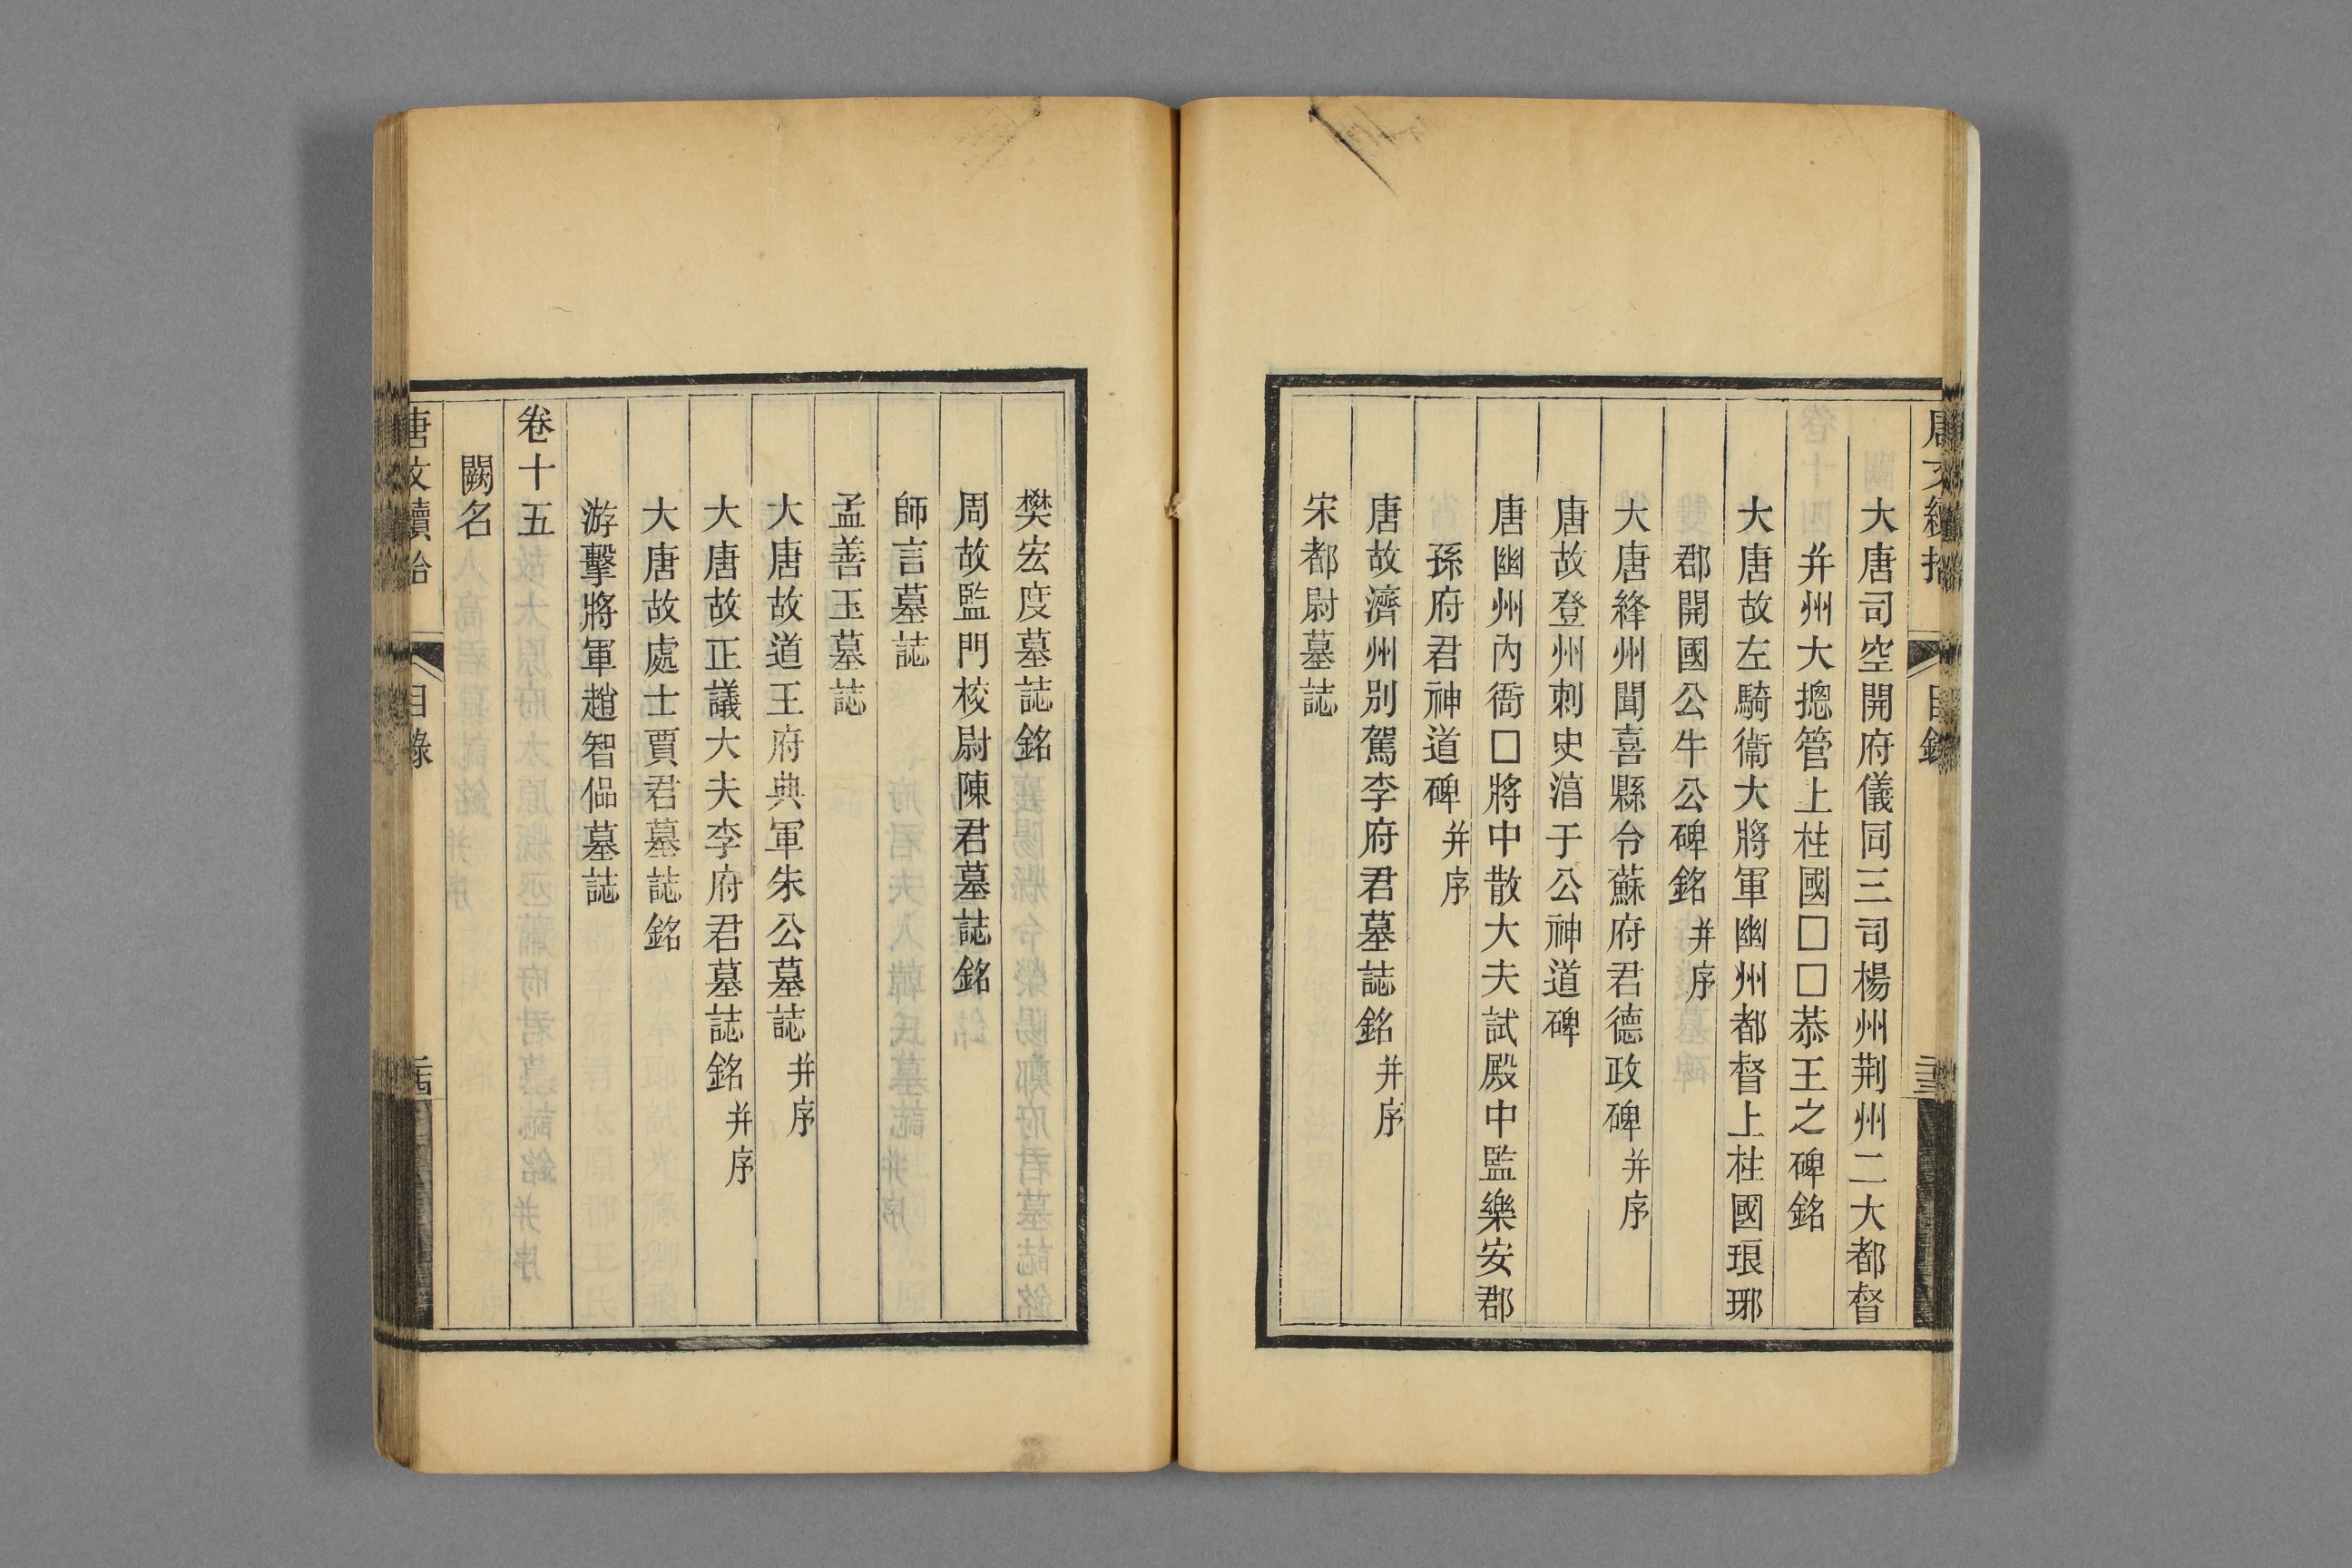 大唐司空開府儀同三司楊州荆州二大都督
并州大摠管上柱國□□恭王之碑銘
大唐故左騎衞大將軍幽州都督上柱國琅邪
郡開國公牛公碑銘并序
大唐絳州聞喜縣令蘇府君德政碑并序
唐故登州刺史淯于公神道碑
唐幽州內衙□將中散大夫試殿中監樂安郡
孫府君神道碑并序
唐故濟州別駕李府君墓誌銘并序
宋都尉墓誌
樊宏度墓誌銘
周故監門校尉陳君墓誌銘
師言墓誌
孟善玉墓誌
大唐故道王府典軍朱公墓誌并序
大唐故正議大夫李府君墓誌銘并序
大唐故處士賈君墓誌銘
游擊將軍趙智偘墓誌
卷十五
闕名
唐文續拾 目錄